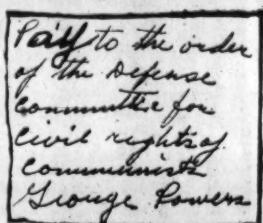 Pay to the order
of the Defense
Committee for
Civil rights of
Communists
George Powers